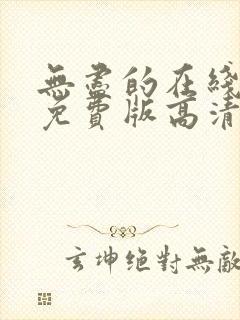 無盡的在綫
免費版高清
玄坤絕對無敵